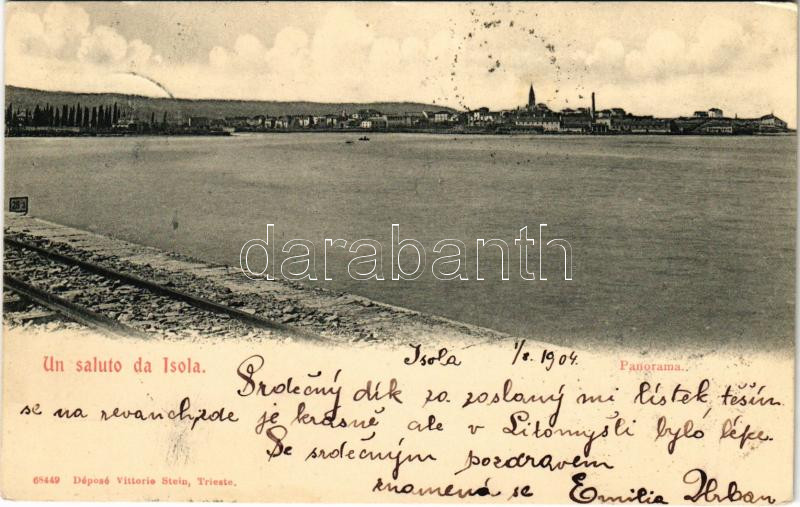 darabanth
Un saluto da Isola.
Panorama.
Isola 1/8. 1904.
Srdečný dík za zaslaný mi lístek, těším
se na revanch, zde je krásně ale v Litomyšli bylo lépe.
Se srdečným pozdravem
znamená se Emilia Urban
68449 Déposé Vittorio Stein, Trieste.